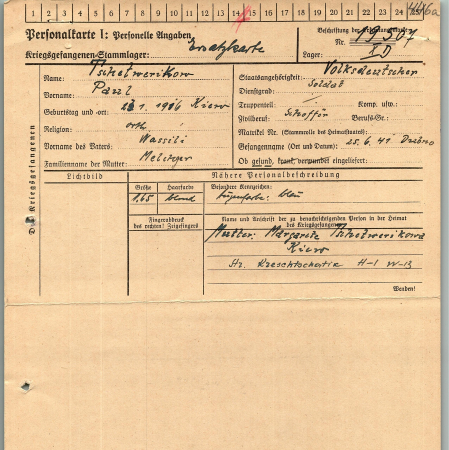 1 2 3 4 5 6 7 8 9 10 11 12 13 14 15 16 17 18 19 20 21 22 23 24 25
Personalkarte I: Personelle Angaben
Beschriftung der Erkennungsmarke
Kriegsgefangenen-Stammlager: Ersatzkarte
Nr.
Lager: XD
Des Kriegsgefangenen
Name: Tschetwerikow
Staatsangehörigkeit: Volksdeutscher
Vorname: Paul
Dienstgrad: Soldat
Geburtstag und -ort: 1. 1906 Kiew
Truppenteil: Komp. usw.:
Religion: orth.
Zivilberuf: Schofför Berufs-Gr.:
Vorname des Vaters: Wassili
Matrikel Nr. (Stammrolle des Heimatstaates):
Familienname der Mutter: Metzger
Gefangennahme (Ort und Datum): 25.6.41
Ob gesund, krank, verwundet eingeliefert:
Lichtbild
Nähere Personalbeschreibung
Größe Haarfarbe Besondere Kennzeichen:
1.65 blond Augenfarbe: blau
Fingerabdruck
des rechten! Zeigefingers
Name und Anschrift der zu benachrichtigenden Person in der Heimat
des Kriegsgefangenen
Mutter: Margarete Tschetwerikowa
Kiew
Str. Kreschtschatik H-1 W-13
Wenden!